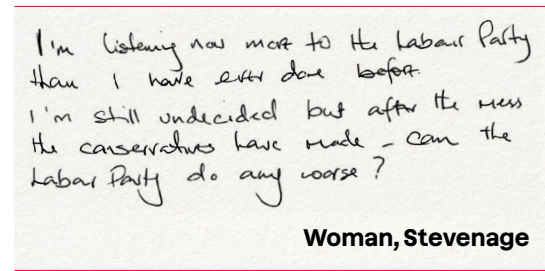 I'm listening now more to the Labour Party
than I have ever done before.
I'm still undecided but after the mess
the conservatives have made - can the
Labour Party do any worse?
Woman, Stevenage